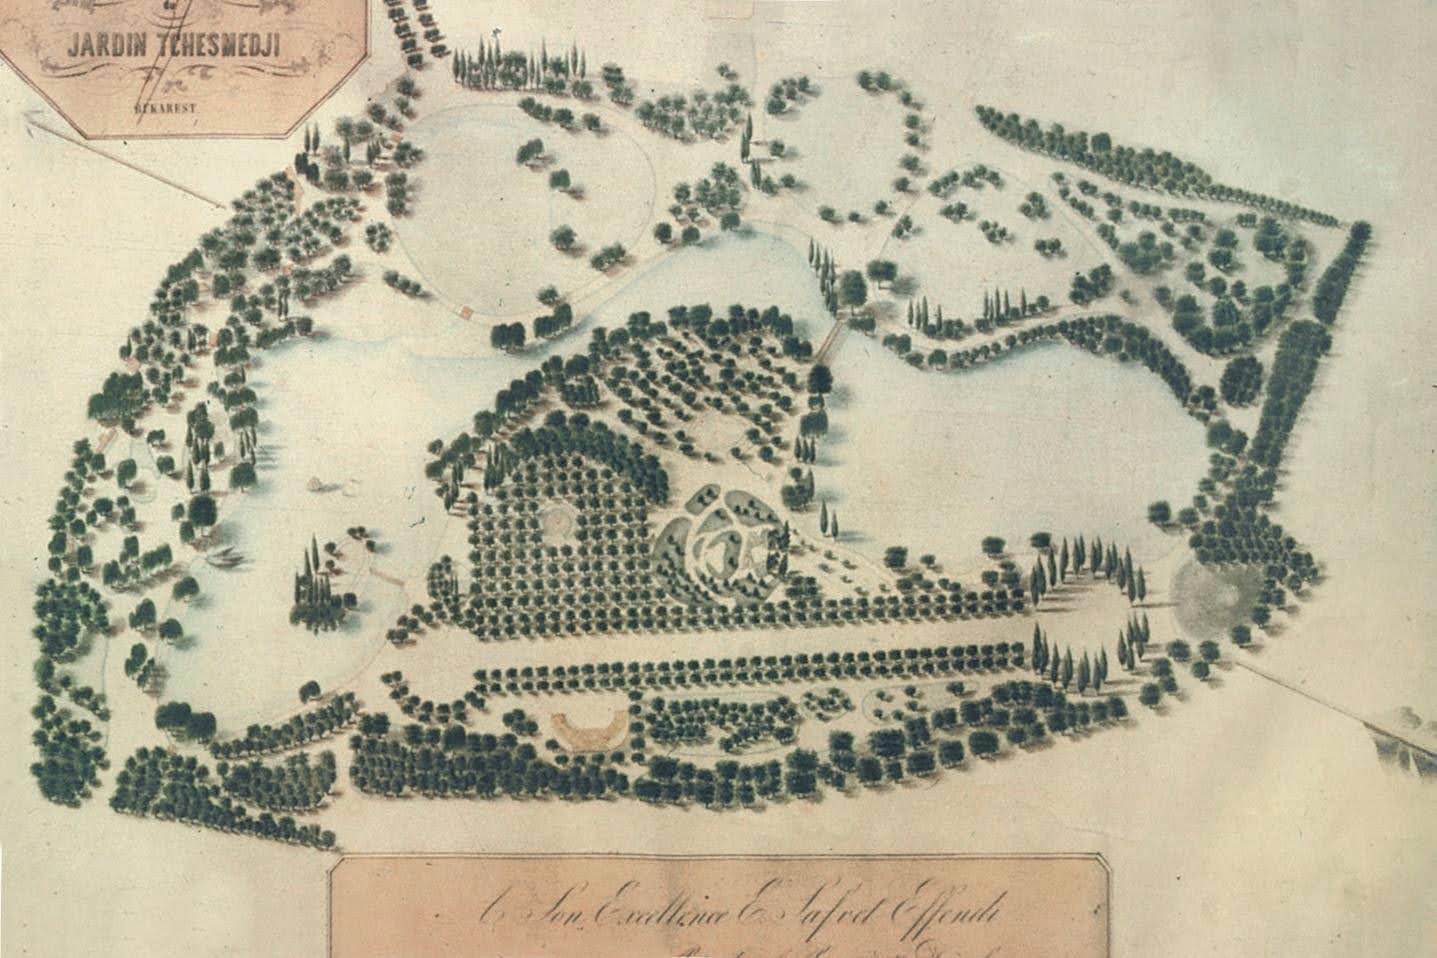 de
JARDIN TCHESMEDJI
BUKAREST
A Son Excellence E. Safvet Effendi